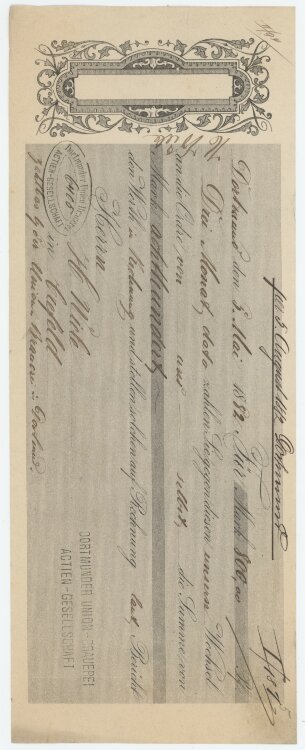 per 8 August 1882 Dortmund
Dortmund den 8. Mai 1882 Für Mark 800,00
Drei Monat dato zahlen Sie gegen diesen unsern Wechsel
an die Ordre von uns selbst die Summe von
Mark achthundert
den Werth in Rechnung und stellen solchen auf Rechnung laut Bericht
Herrn
Otto H. Wiele
in
zahlbar bei der Union Brauerei in Dortmund.
Dortmunder Union-Brauerei
ACTIEN-GESELLSCHAFT
DORTMUNDER UNION-BRAUEREI
ACTIEN-GESELLSCHAFT